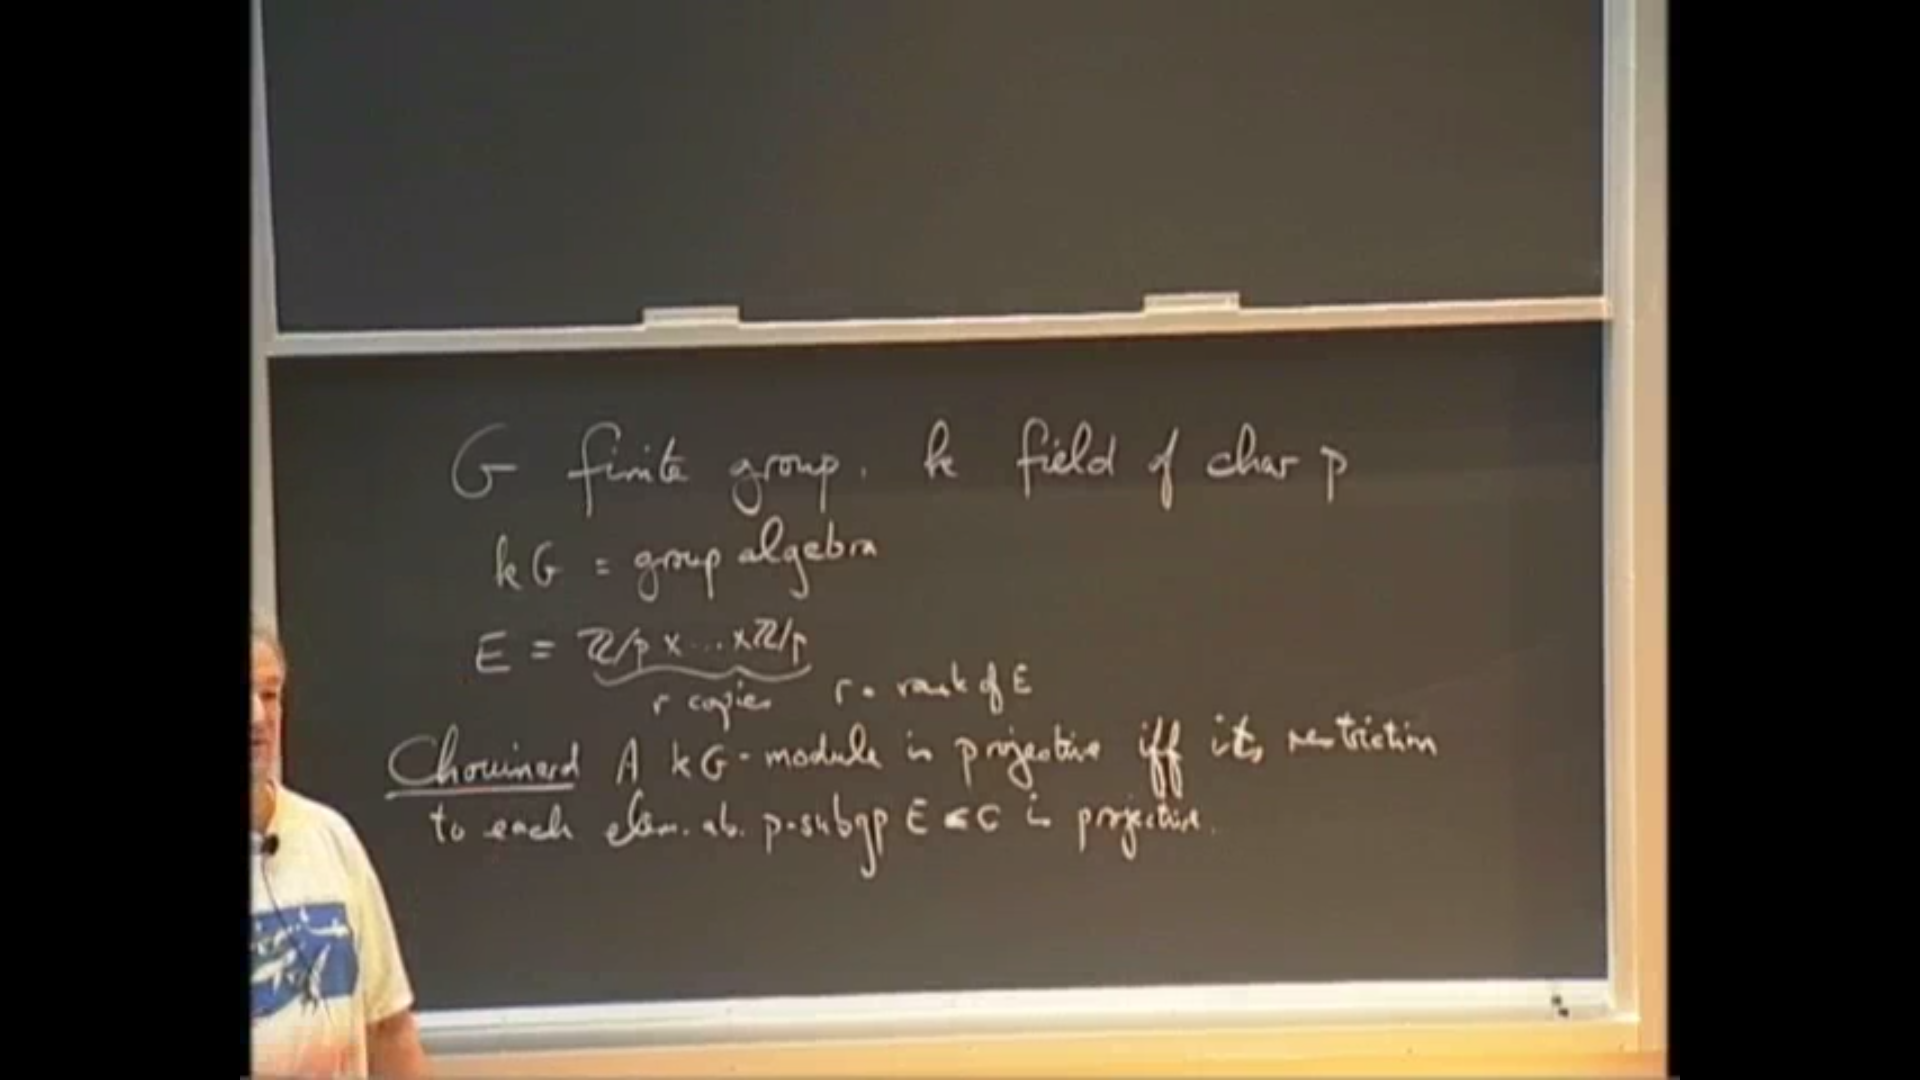 G finite group. k field of char p
kG = group algebra
E = ℤ/p × ... × ℤ/p
r copies r = rank of E
Chouinard A kG-module is projective iff its restriction
to each elem. ab. p-subgp E ≤ G is projective.